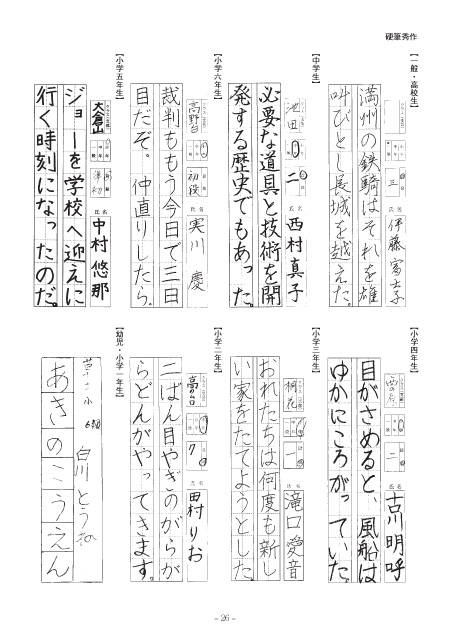 硬筆秀作
【一般・高校生】
三
伊藤富士子
満州の鉄騎はそれを雄
叫びとし長城を越えた。
【中学生】
池田
二
氏名
西村真子
必要な道具と技術を開
発する歴史でもあった。
【小学六年生】
高野台
初段
氏名
実川慶
裁判ももう今日で三日
目だぞ。仲直りしたら。
【小学五年生】
大倉山
準初
氏名
中村悠那
ジョーを学校へ迎えに
行く時刻になったのだ。
【小学四年生】
二
氏名
古川明呼
目がさめると、風船は
ゆかにころがっていた。
【小学三年生】
一
氏名
滝口愛音
おれたちは何度も新し
い家をたてようとした。
【小学二年生】
高の台
7
氏名
田村りお
二ばん目やぎのがらが
らどんがやってきます。
【幼児・小学一年生】
6級
白川とうね
あきのこうえん
- 26 -